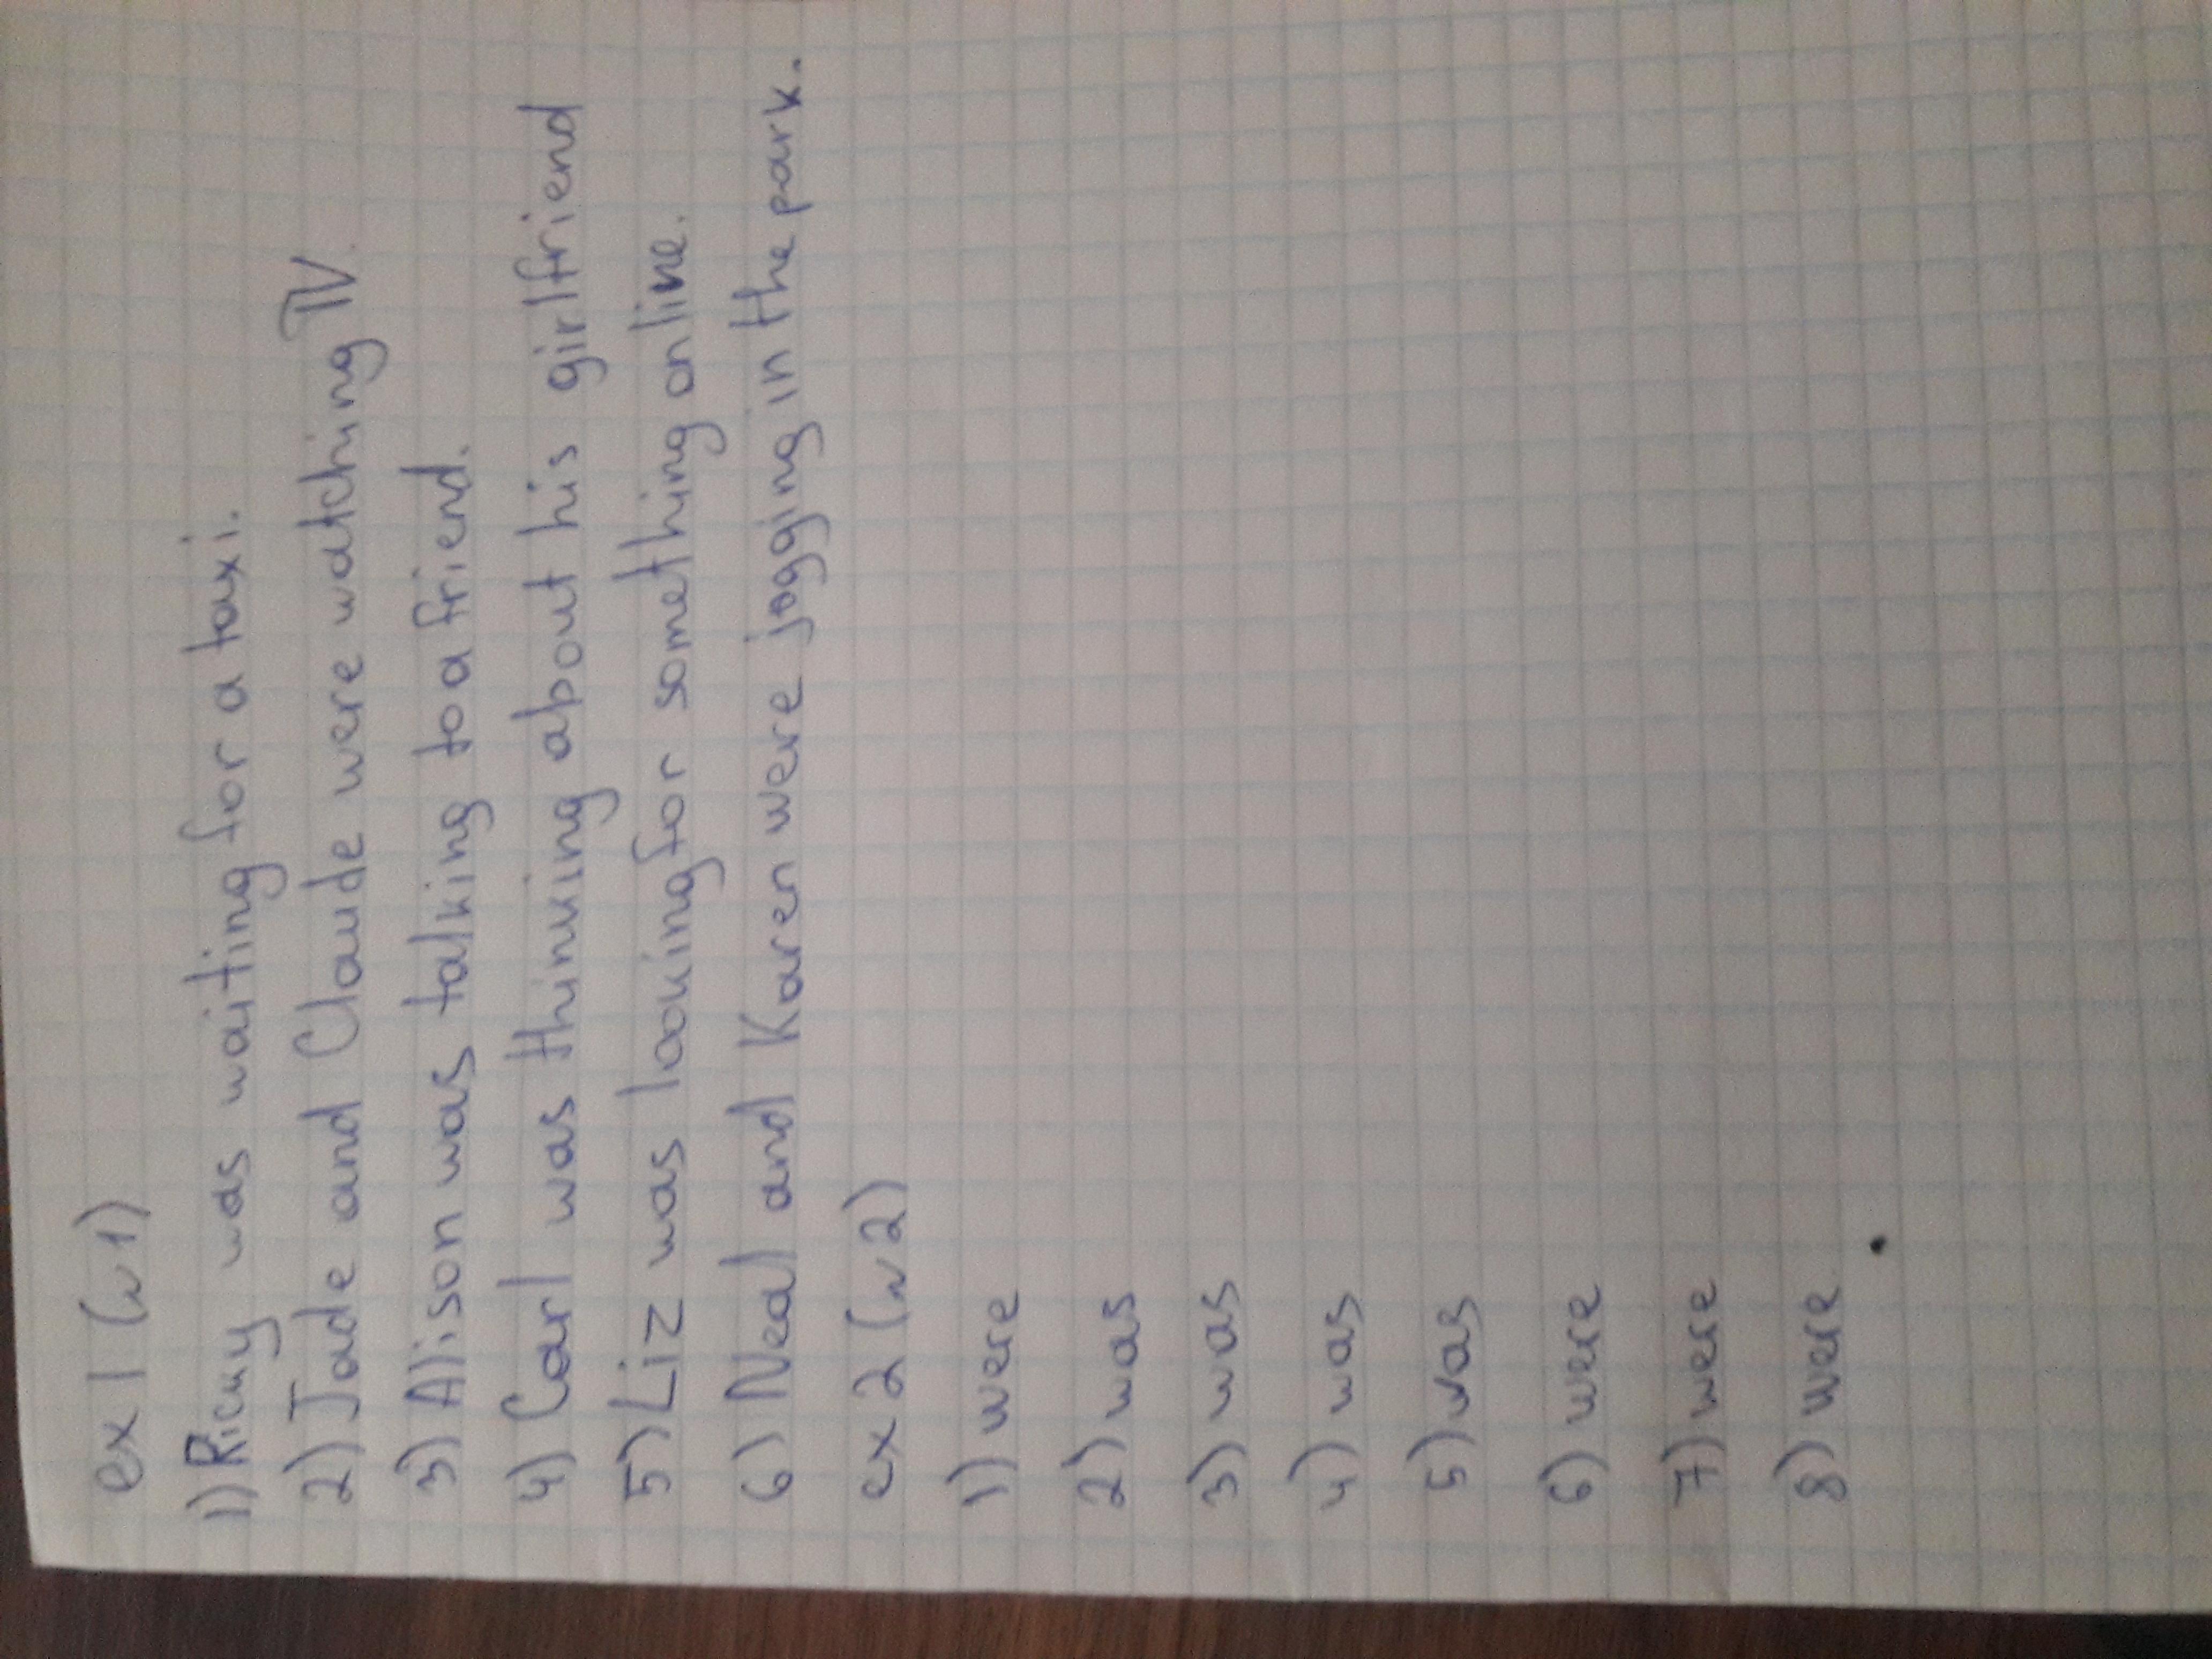 ex 1 (w 1)
1) Ricky was waiting for a taxi.
2) Jade and Claude were watching TV.
3) Alison was talking to a friend.
4) Carl was thinking about his girlfriend
5) Liz was looking for something online.
6) Neal and Karen were jogging in the park.
ex 2 (w 2)
1) were
2) was
3) was
4) was
5) was
6) were
7) were
8) were